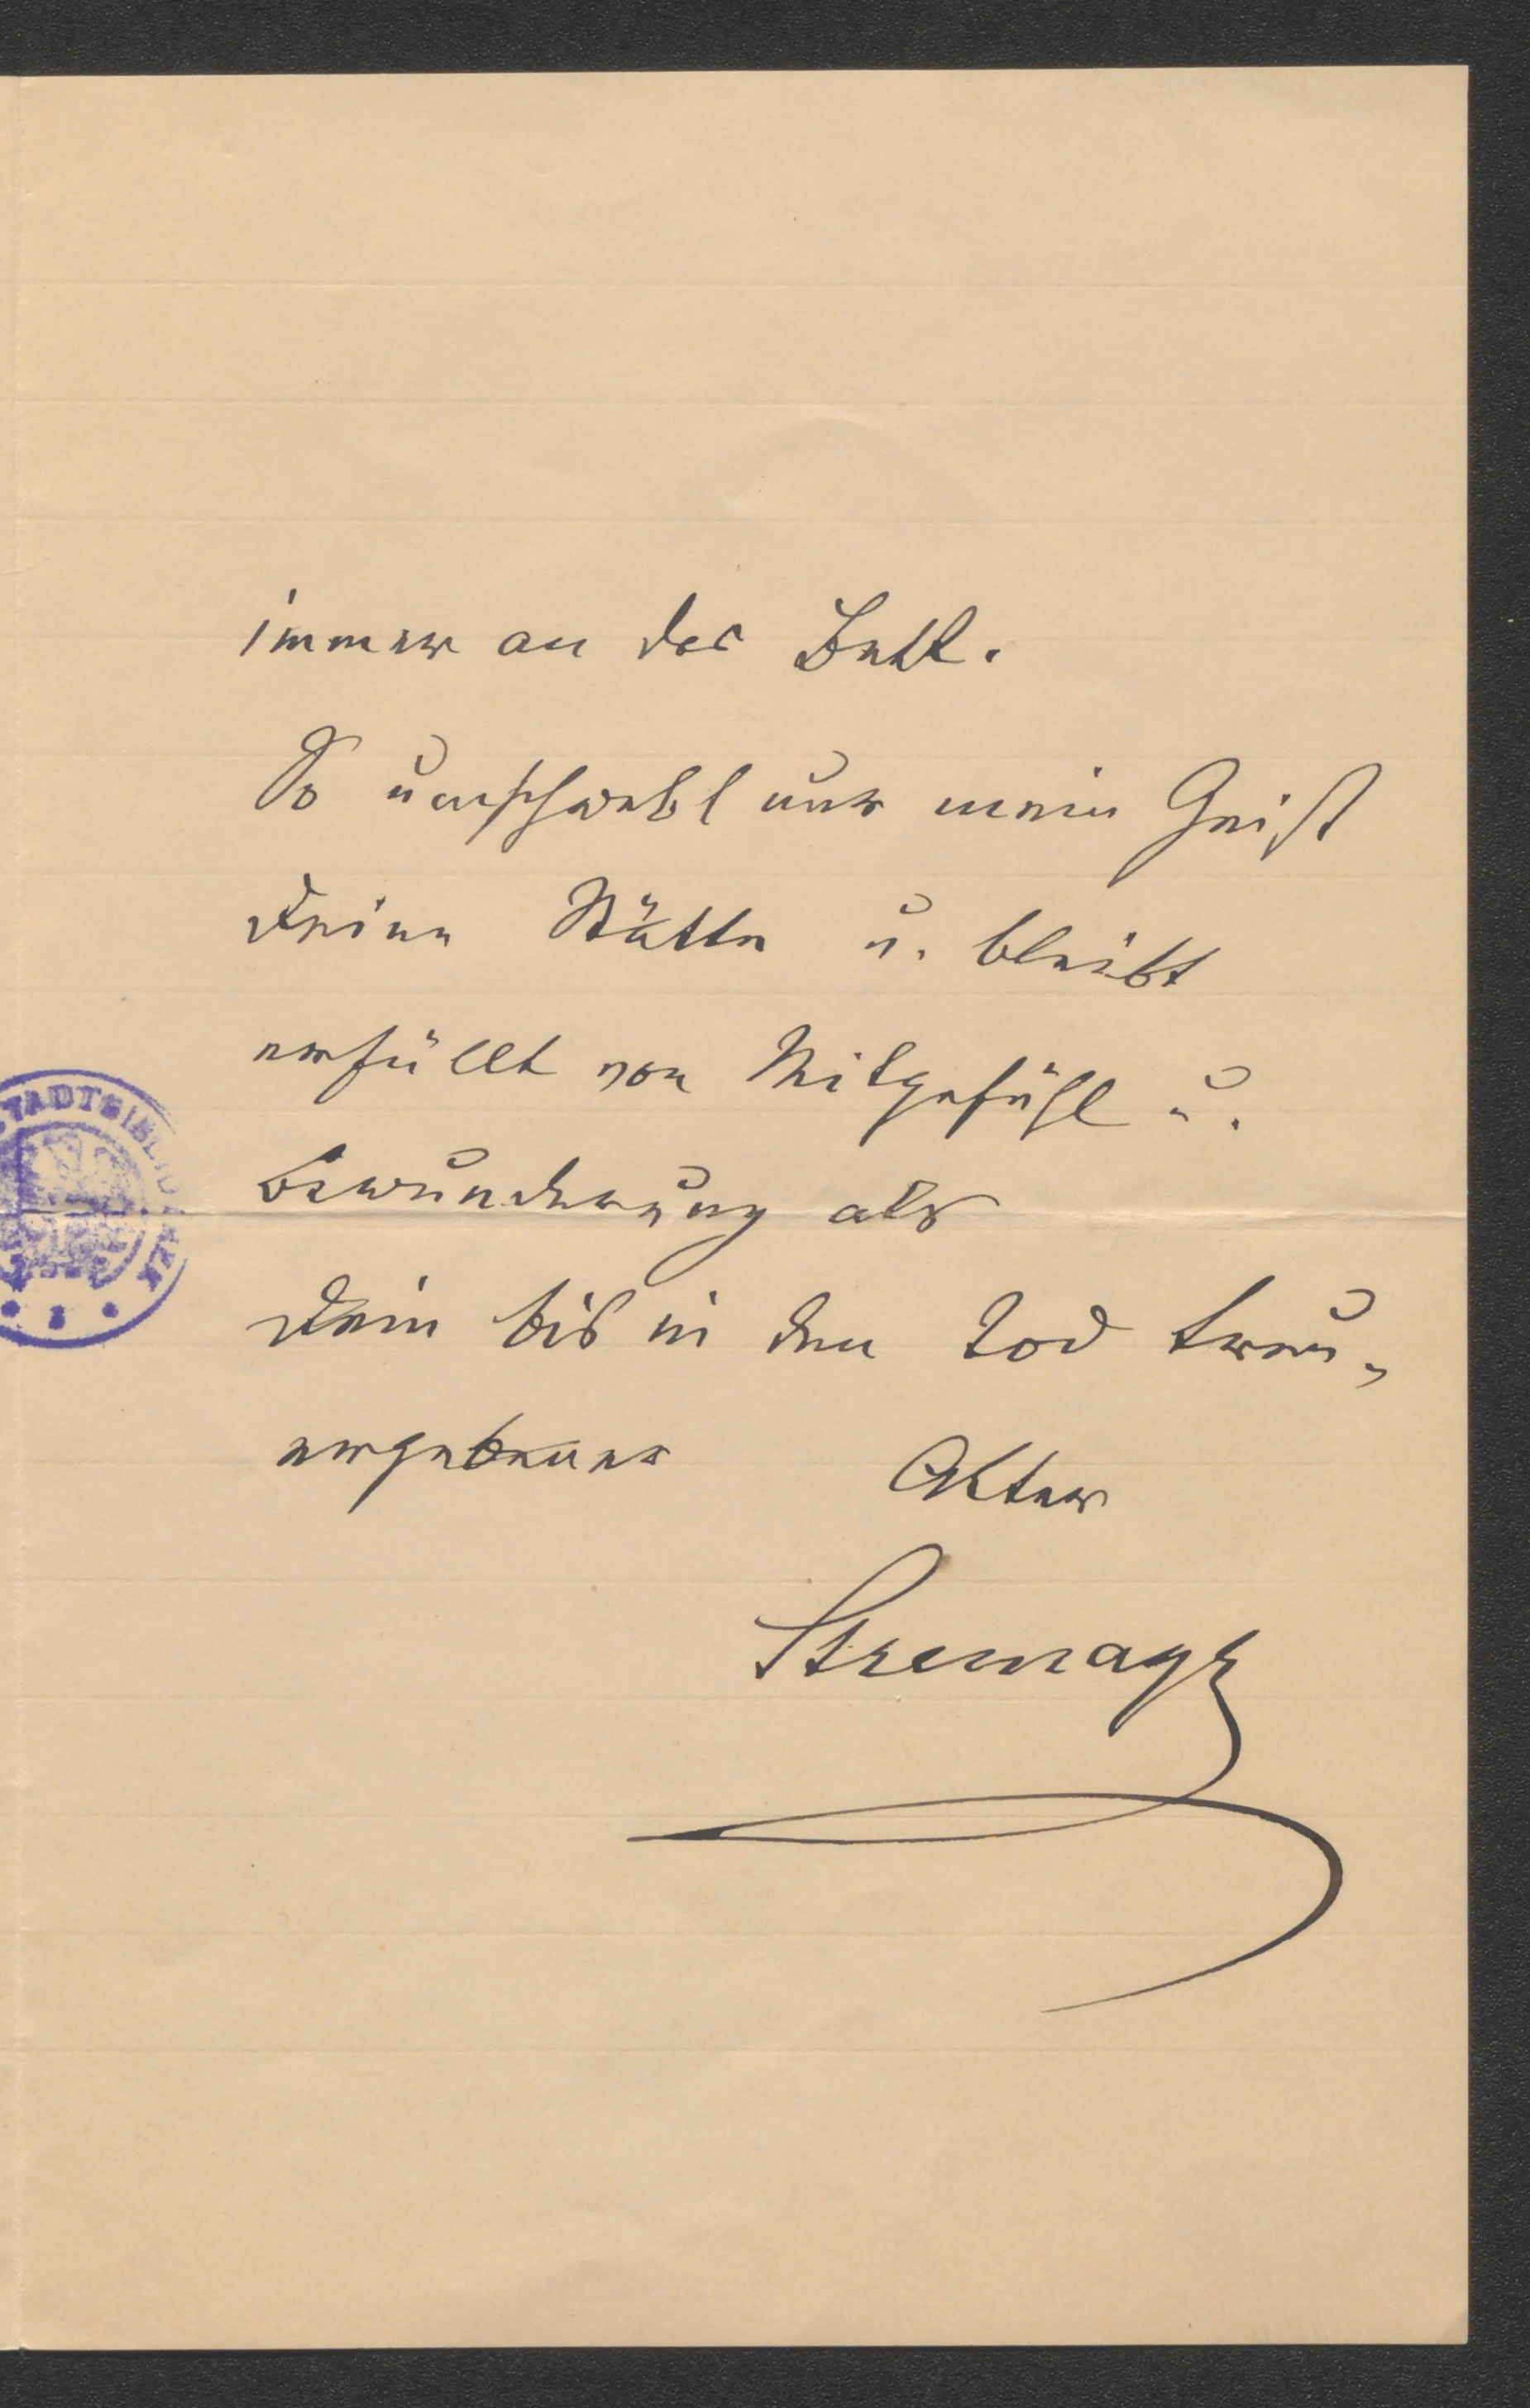 immer an das Bett.
So umschwebt nur mein Geist
Deine Stätte u. bleibt
erfüllt von Mitgefühl u.
Bewunderung als
Dein bis in den Tod treu-
ergebener Alter
Stremayr
STADTBIBLIOTHEK